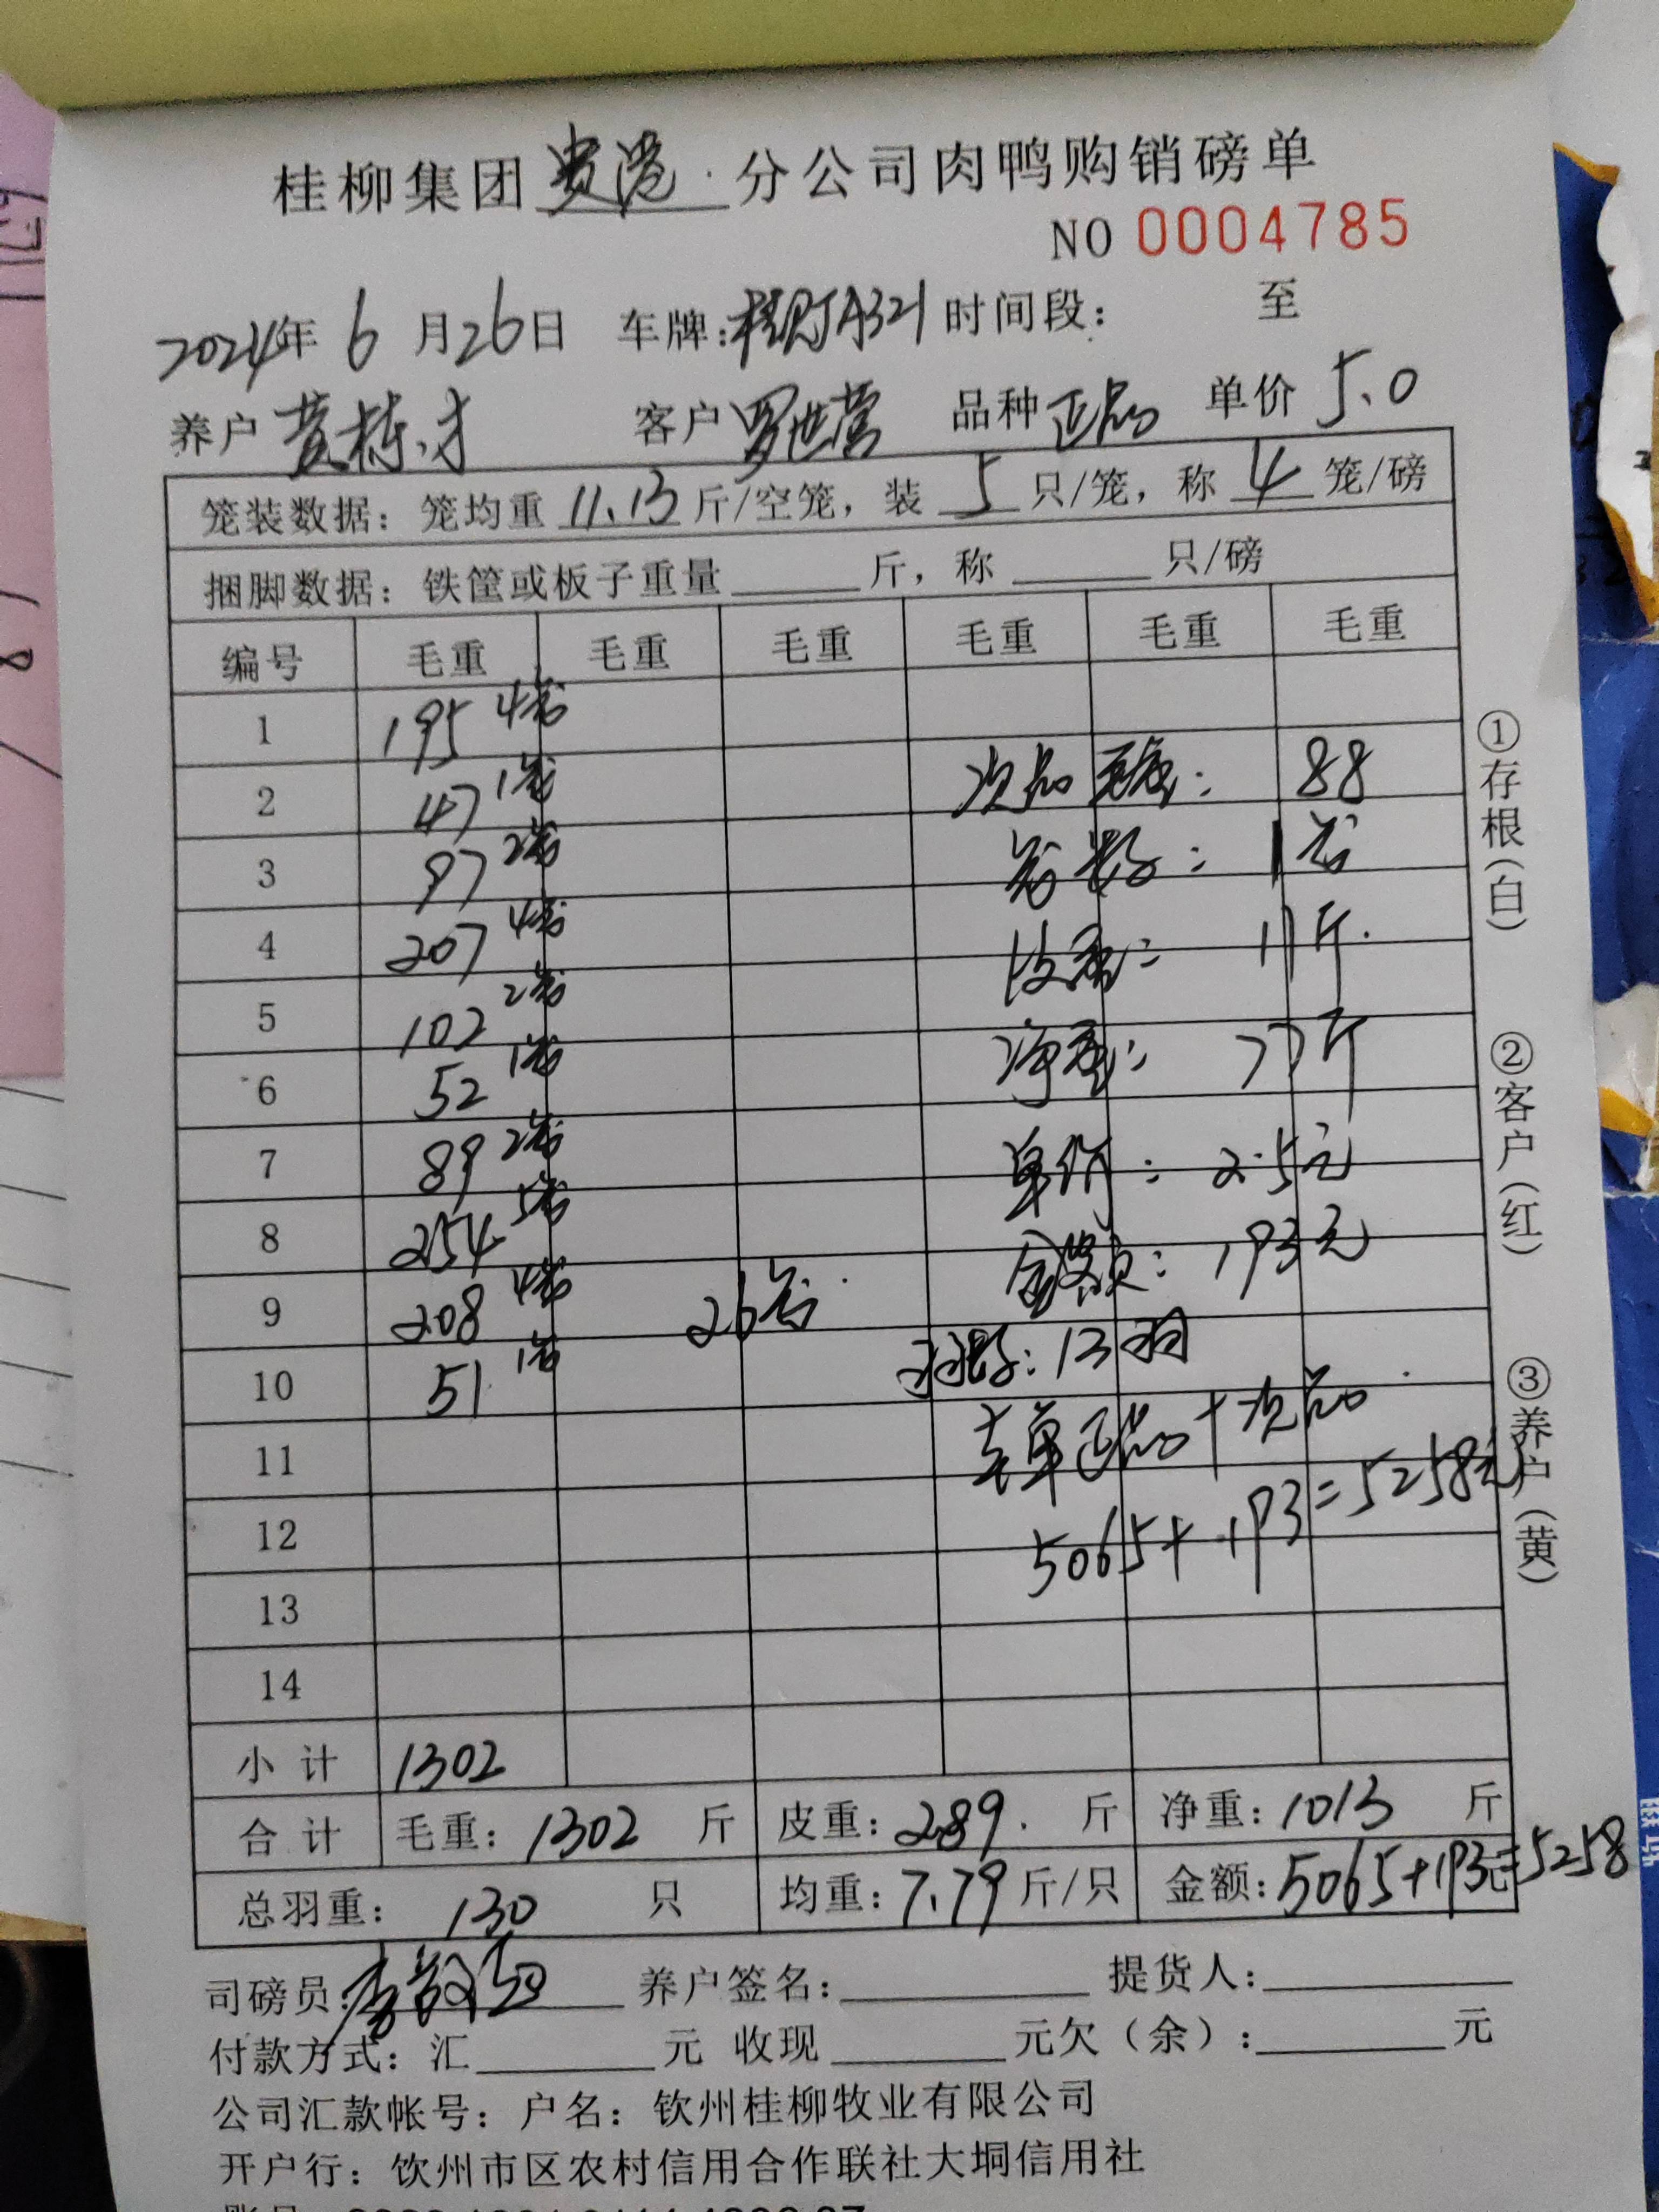 桂柳集团 贵港 分公司肉鸭购销磅单
NO 0004785
2024年 6 月 26 日 车牌: A321 时间段: 至
养户 黄栋才 客户 罗世营 品种 正品 单价 5.0
笼装数据: 笼均重 11.13 斤/空笼, 装 5 只/笼, 称 4 笼/磅
捆脚数据: 铁筐或板子重量 斤, 称 只/磅
编号 毛重 毛重 毛重 毛重 毛重 毛重
1 195 4笼
2 47 1笼 次品毛重: 88
3 97 2笼 笼数: 1笼
4 207 4笼 皮重: 11斤
5 102 2笼 净重: 77斤
6 52 1笼
7 89 2笼 单价: 2.5元
8 254 5笼 金额: 193元
9 208 4笼 26笼
10 51 1笼 羽数: 13羽
11 本单正品+次品
12 5065+193=5258元
13
14
小计 1302
合计 毛重: 1302 斤 皮重: 289 斤 净重: 1013 斤
总羽重: 130 只 均重: 7.79 斤/只 金额: 5065+193元=5258
司磅员: 养户签名: 提货人:
付款方式: 汇 元 收现 元欠（余）: 元
公司汇款帐号: 户名: 钦州桂柳牧业有限公司
开户行: 钦州市区农村信用合作联社大垌信用社
①存根（白）
②客户（红）
③养户（黄）